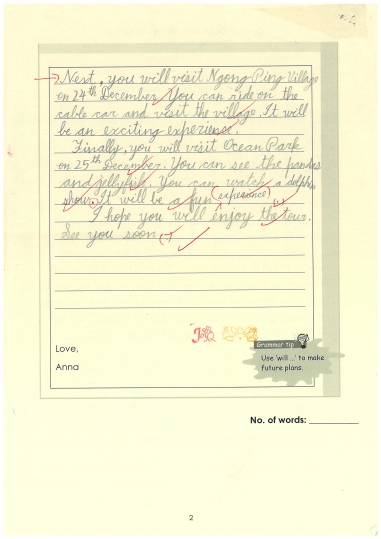 Next, you will visit Ngong Ping Village
on 24th December. You can ride on the
cable car and visit the village. It will
be an exciting experience.
Finally, you will visit Ocean Park
on 25th December. You can see the pandas
and jellyfish. You can watch a dolphin
show. It will be a fun (experience).
I hope you will enjoy the tour.
See you soon.
Love,
Anna
Grammar Tip
Use 'will ...' to make
future plans.
No. of words:
2